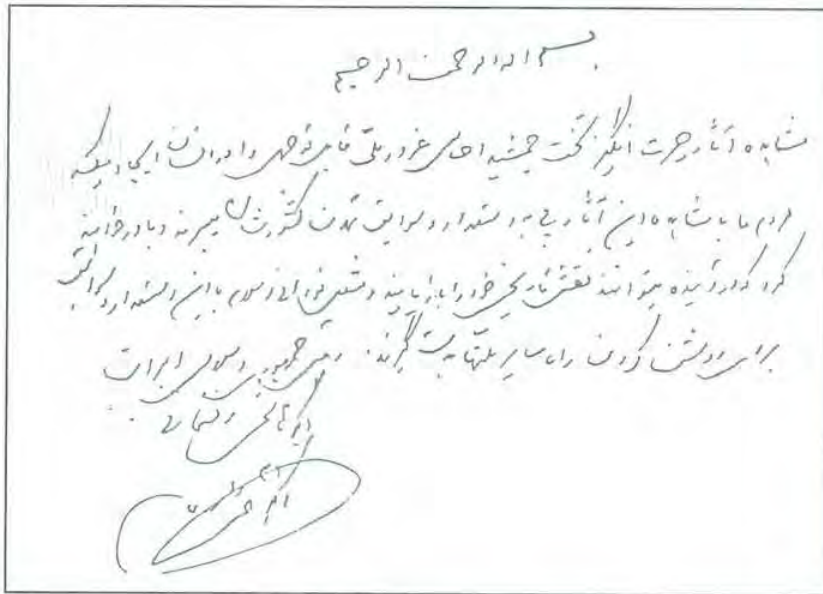 بسم الله الرحمن الرحیم
مشاهده آثار حیرت انگیز تخت جمشید احساس غرور ملی قابل توجهی را در انسان ایجاد میکند
مردم ما با مشاهده این آثار پی به استعداد و سوابق تمدن کشورشان میبرند و باور خواهند
کرد که در آینده میتوانند نقش تاریخی خود را بازیابند و مشعل فروزان اسلام با این استعداد و سوابق
برای روشن کردن راه سایر ملتها بدست گیرند. رئیس جمهوری اسلامی ایران
اکبر هاشمی رفسنجانی